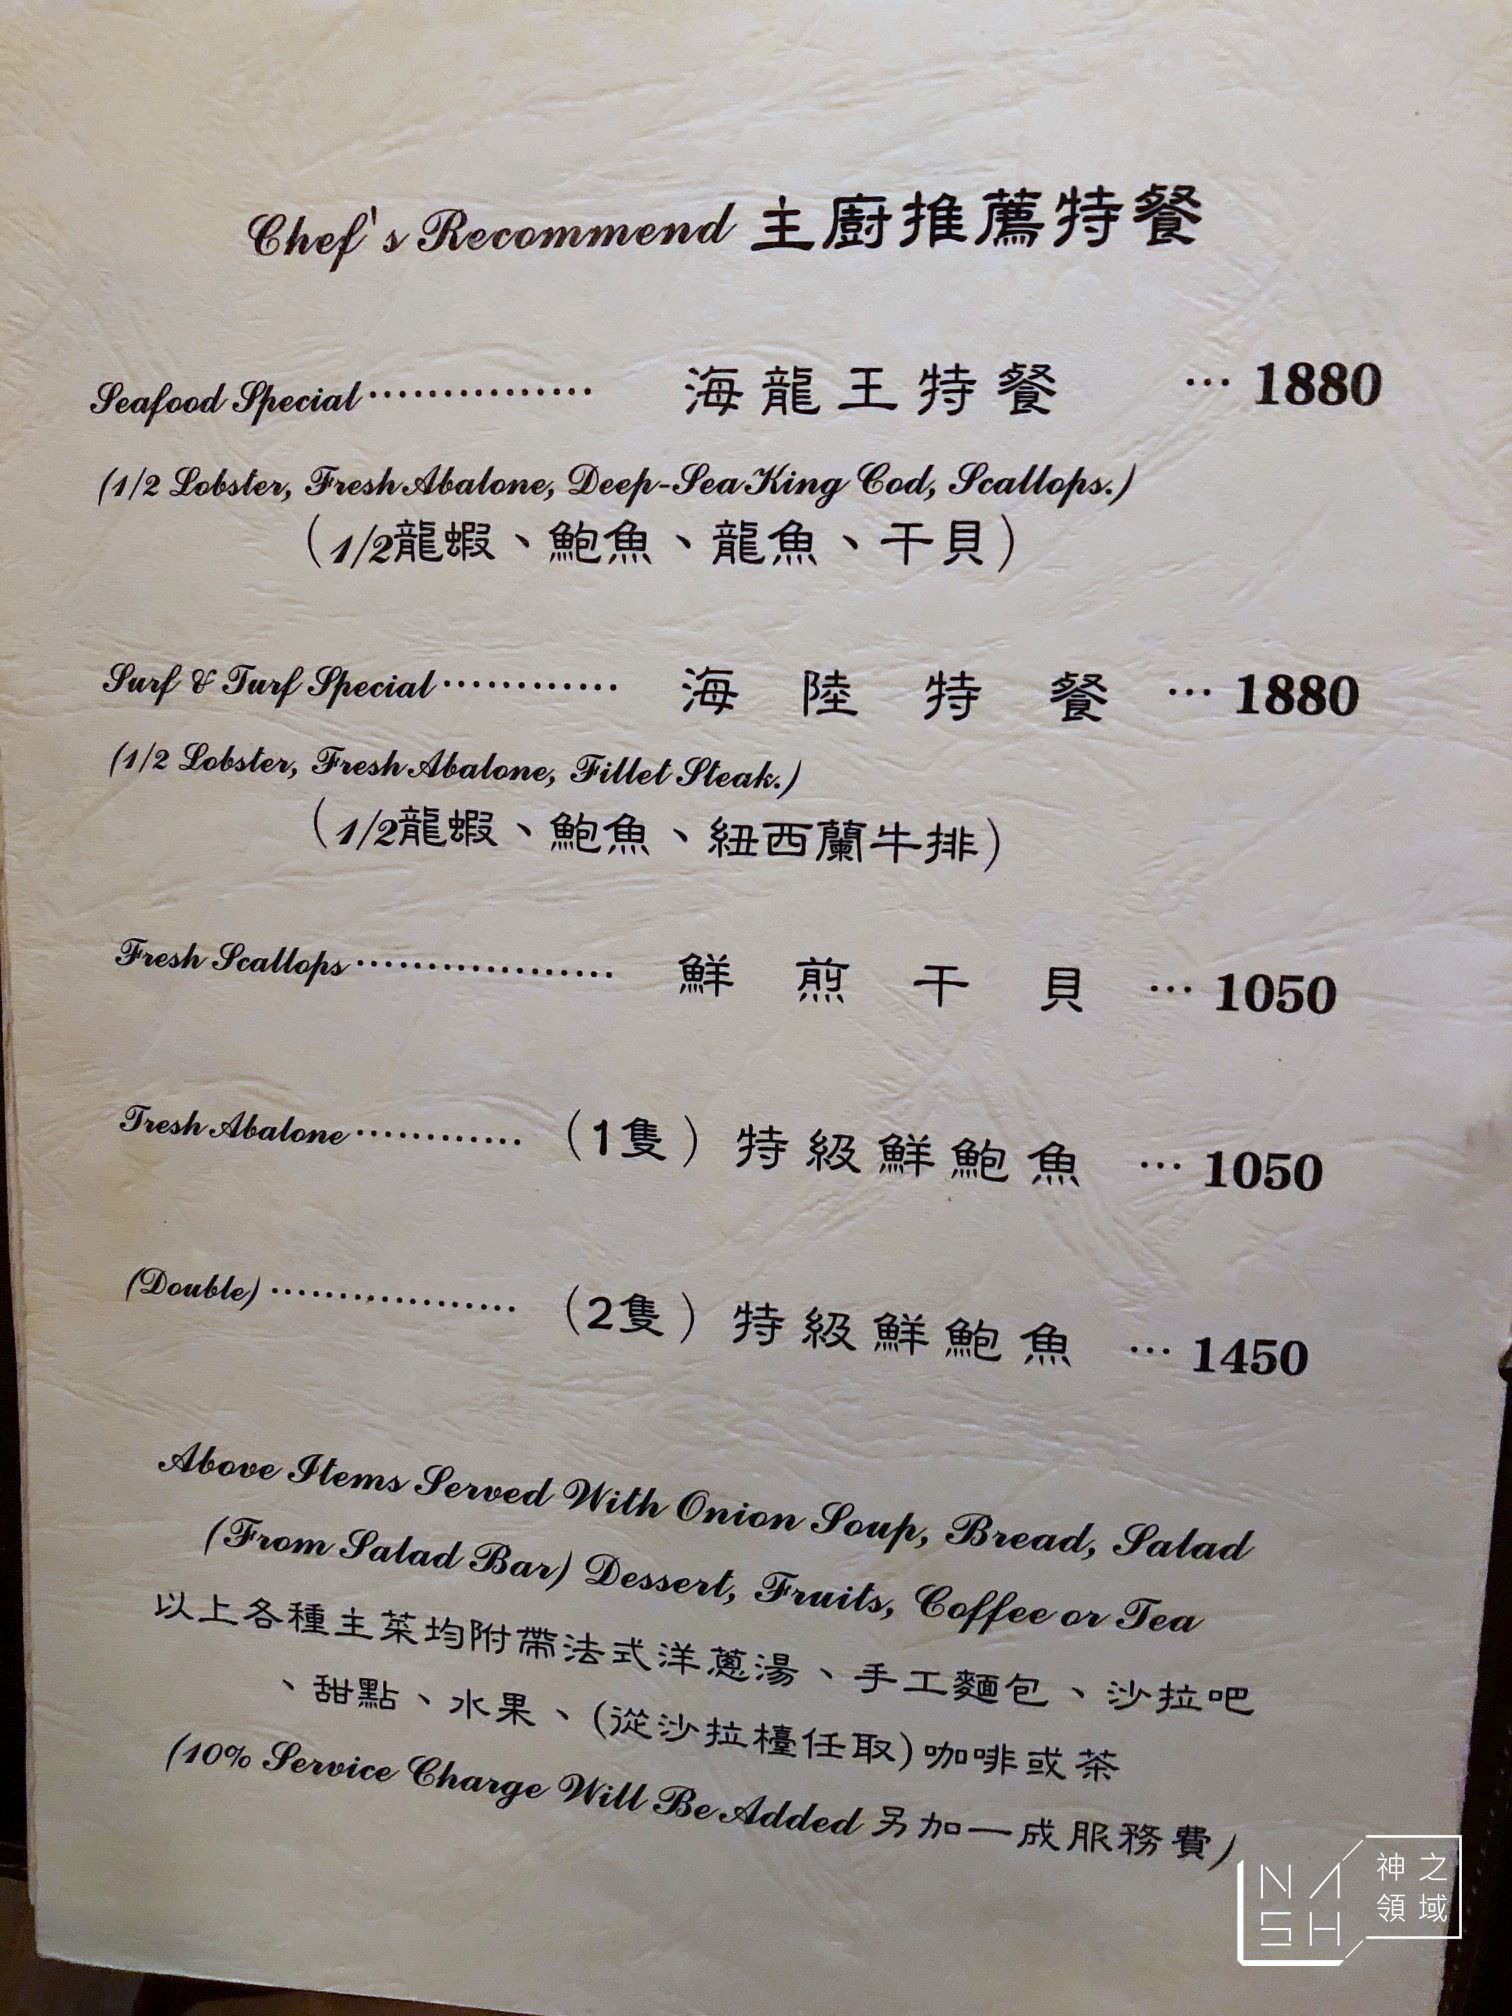 Chef's Recommend 主廚推薦特餐
Seafood Special ··············· 海龍王特餐 ··· 1880
(1/2 Lobster, Fresh Abalone, Deep-Sea King Cod, Scallops.)
(1/2龍蝦、鮑魚、龍魚、干貝)
Surf & Turf Special ············ 海陸特餐 ··· 1880
(1/2 Lobster, Fresh Abalone, Fillet Steak.)
(1/2龍蝦、鮑魚、紐西蘭牛排)
Fresh Scallops ··················· 鮮煎干貝 ··· 1050
Tresh Abalone ············ (1隻) 特級鮮鮑魚 ··· 1050
(Double) ·················· (2隻) 特級鮮鮑魚 ··· 1450
Above Items Served With Onion Soup, Bread, Salad
(From Salad Bar) Dessert, Fruits, Coffee or Tea
以上各種主菜均附帶法式洋蔥湯、手工麵包、沙拉吧
、甜點、水果、(從沙拉檯任取)咖啡或茶
(10% Service Charge Will Be Added 另加一成服務費)
NASH 神之領域